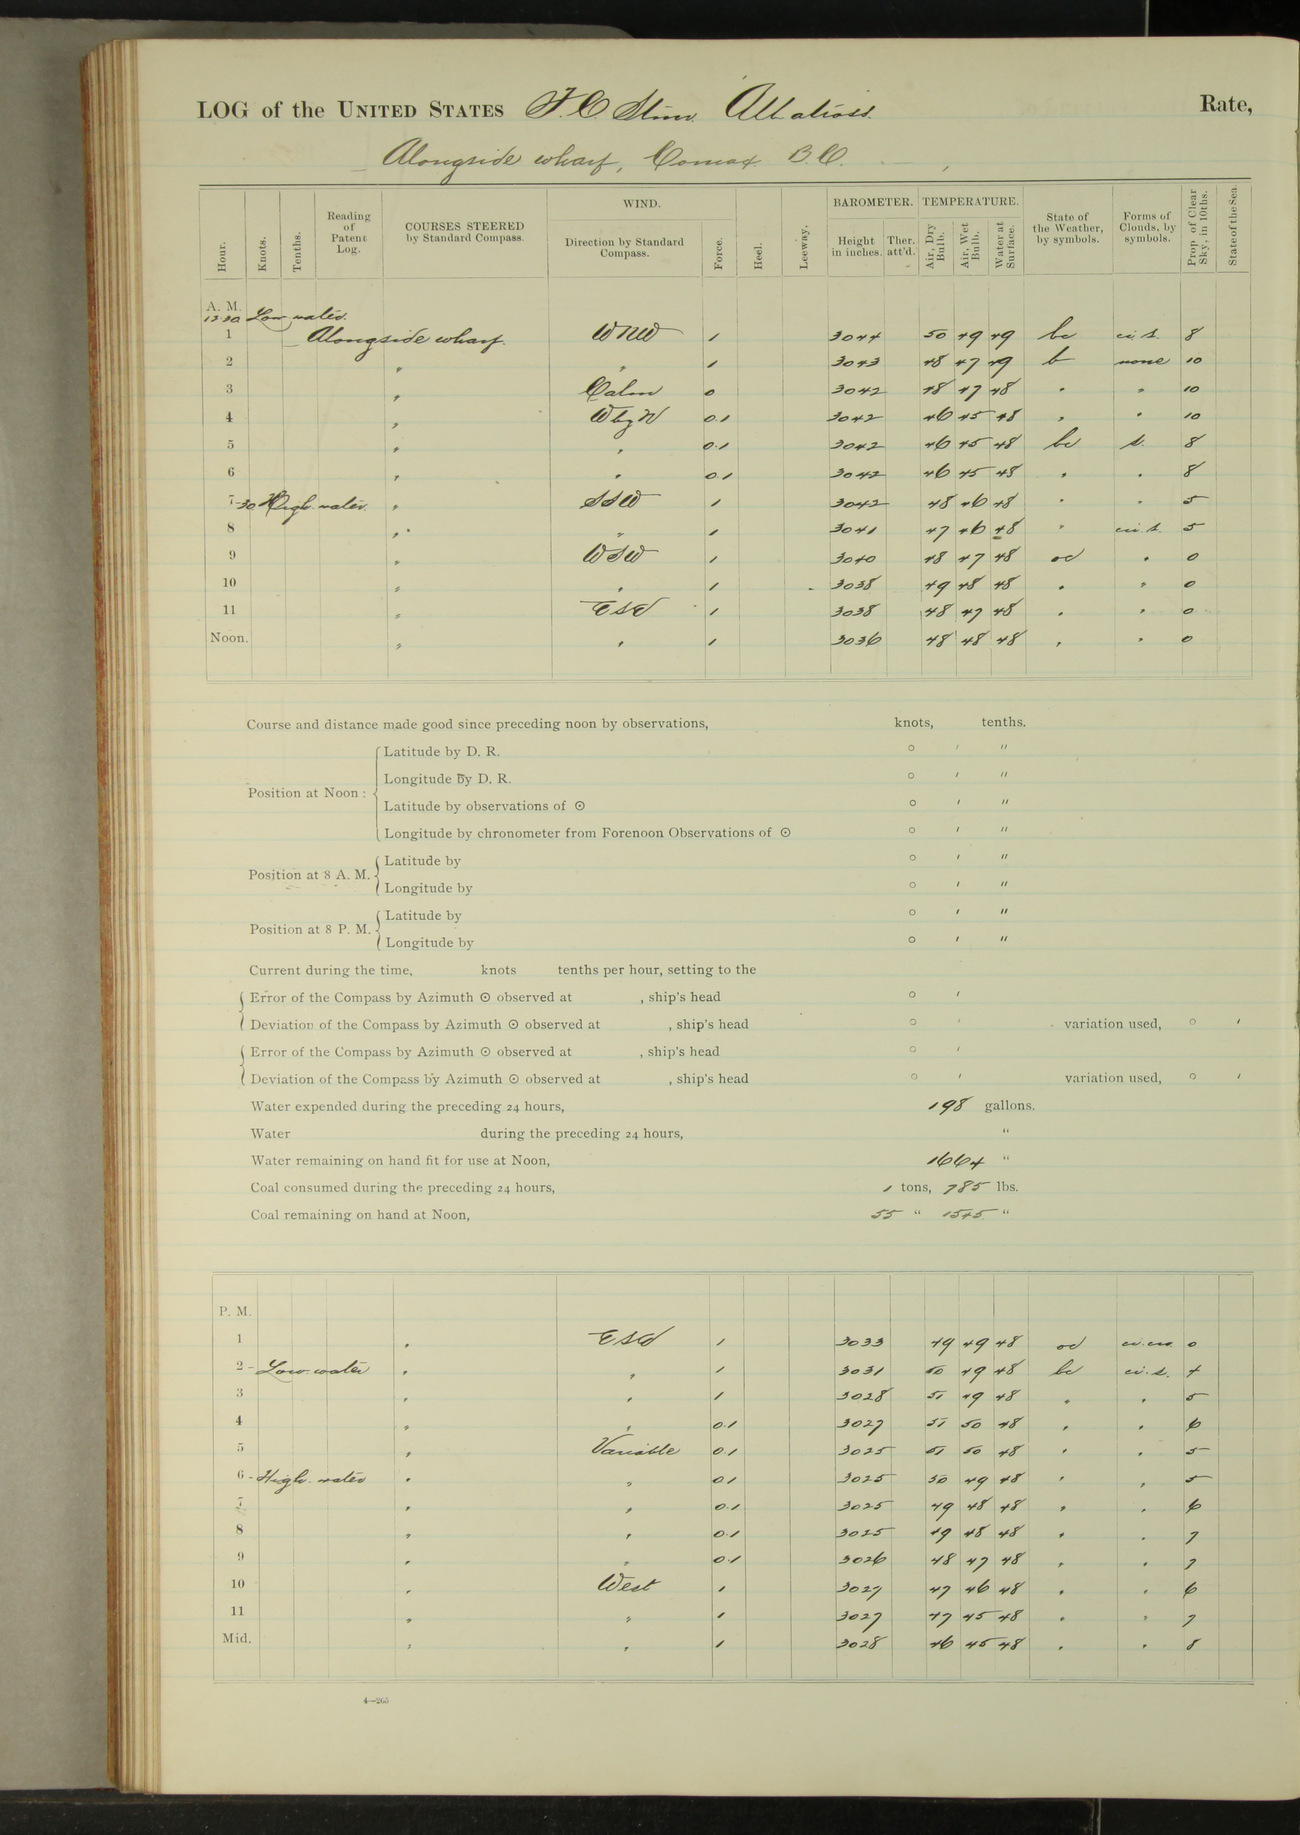 LOG of the UNITED STATES F. C. Stmr. Albatross. Rate,
Alongside wharf, Comax B.C.
Hour. Knots. Tenths. Reading of Patent Log. COURSES STEERED by Standard Compass. WIND. Direction by Standard Compass. Force. Heel. Leeway. BAROMETER. Height in inches. Ther. att'd. TEMPERATURE. Air, Dry Bulb. Air, Wet Bulb. Water at Surface. State of the Weather, by symbols. Forms of Clouds, by symbols. Prop. of Clear Sky, in 10ths. State of the Sea.
A. M.
12 30 Low water.
1 Alongside wharf. WNW 1 3044 50 49 49 bc ci. s. 8
2 " " 1 3043 48 47 49 b none 10
3 " Calm 0 3042 48 47 48 " " 10
4 " W by N 0.1 3042 46 45 48 " " 10
5 " " 0.1 3042 46 45 48 bc s. 8
6 " " 0.1 3042 46 45 48 " " 8
7-30 High water. " SSW 1 3042 48 46 48 " " 5
8 " " 1 3041 47 46 48 " ci. s. 5
9 " WSW 1 3040 48 47 48 oc " 0
10 " " 1 3038 49 48 48 " " 0
11 " ESE 1 3038 48 47 48 " " 0
Noon. " " 1 3036 48 48 48 " " 0
Course and distance made good since preceding noon by observations, knots, tenths.
Position at Noon : Latitude by D. R. ° ' "
Longitude by D. R. ° ' "
Latitude by observations of ☉ ° ' "
Longitude by chronometer from Forenoon Observations of ☉ ° ' "
Position at 8 A. M. Latitude by ° ' "
Longitude by ° ' "
Position at 8 P. M. Latitude by ° ' "
Longitude by ° ' "
Current during the time, knots tenths per hour, setting to the
Error of the Compass by Azimuth ☉ observed at , ship's head ° '
Deviation of the Compass by Azimuth ☉ observed at , ship's head ° ' variation used, ° '
Error of the Compass by Azimuth ☉ observed at , ship's head ° '
Deviation of the Compass by Azimuth ☉ observed at , ship's head ° ' variation used, ° '
Water expended during the preceding 24 hours, 198 gallons.
Water during the preceding 24 hours, "
Water remaining on hand fit for use at Noon, 1664 "
Coal consumed during the preceding 24 hours, 1 tons, 785 lbs.
Coal remaining on hand at Noon, 55 " 1545 "
P. M.
1 " ESE 1 3033 49 49 48 oc 0
2 - Low water " " 1 3031 50 49 48 bc ci. s. 4
3 " " 1 3028 51 49 48 " " 5
4 " " 0.1 3027 51 50 48 " " 6
5 " Variable 0.1 3025 51 50 48 " " 5
6 - High water " " 0.1 3025 50 49 48 " " 5
7 " " 0.1 3025 49 48 48 " " 6
8 " " 0.1 3025 49 48 48 " " 7
9 " " 0.1 3026 48 47 48 " " 7
10 " West 1 3027 47 46 48 " " 6
11 " " 1 3027 47 45 48 " " 7
Mid. " " 1 3028 46 45 48 " " 8
4—265